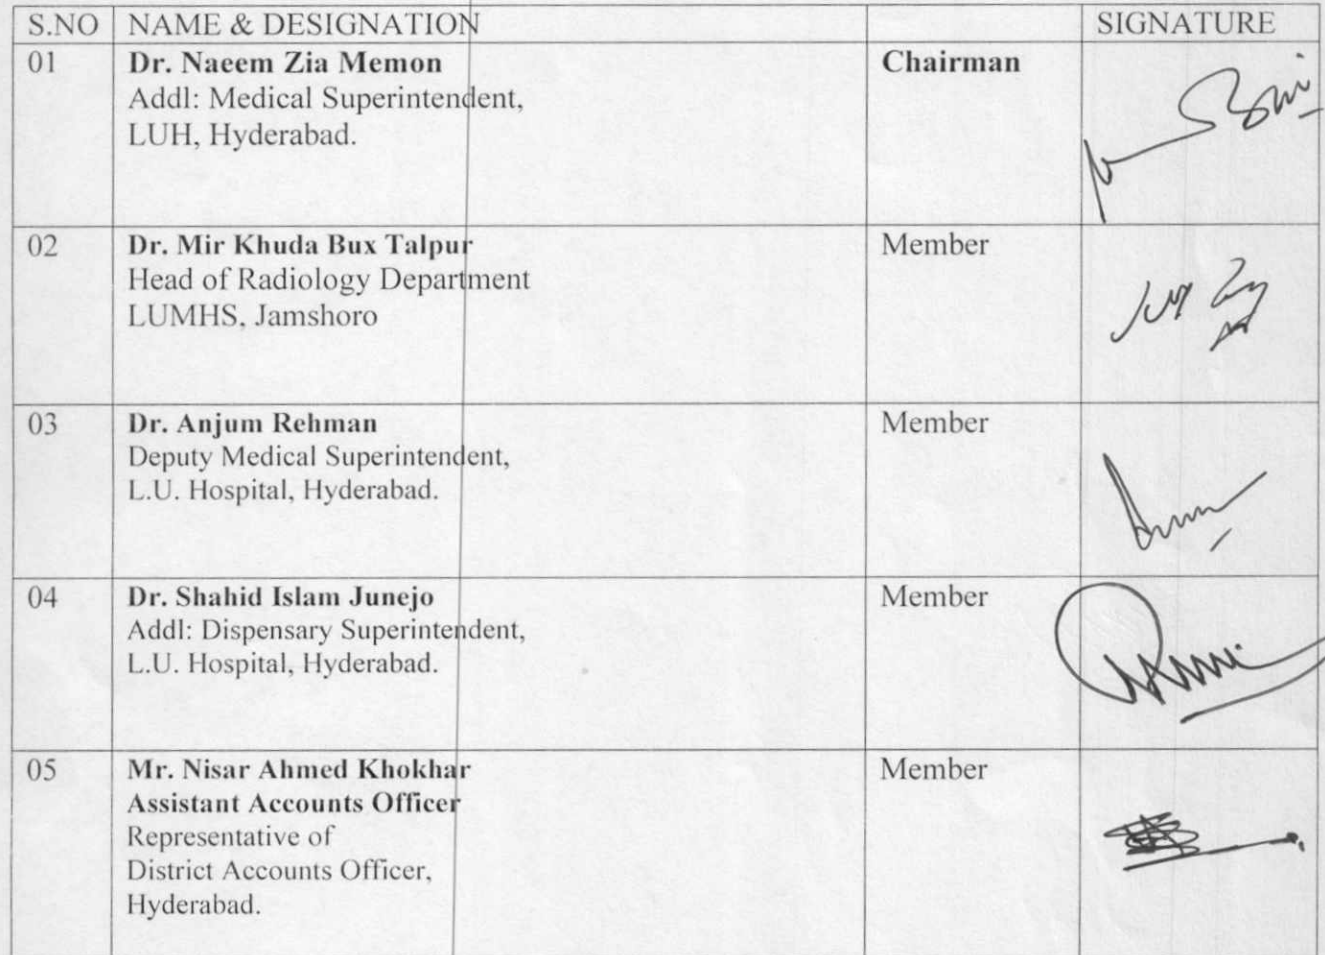 S.NO NAME & DESIGNATION SIGNATURE
01 Dr. Naeem Zia Memon Chairman
Addl: Medical Superintendent,
LUH, Hyderabad.
02 Dr. Mir Khuda Bux Talpur Member
Head of Radiology Department
LUMHS, Jamshoro
03 Dr. Anjum Rehman Member
Deputy Medical Superintendent,
L.U. Hospital, Hyderabad.
04 Dr. Shahid Islam Junejo Member
Addl: Dispensary Superintendent,
L.U. Hospital, Hyderabad.
05 Mr. Nisar Ahmed Khokhar Member
Assistant Accounts Officer
Representative of
District Accounts Officer,
Hyderabad.